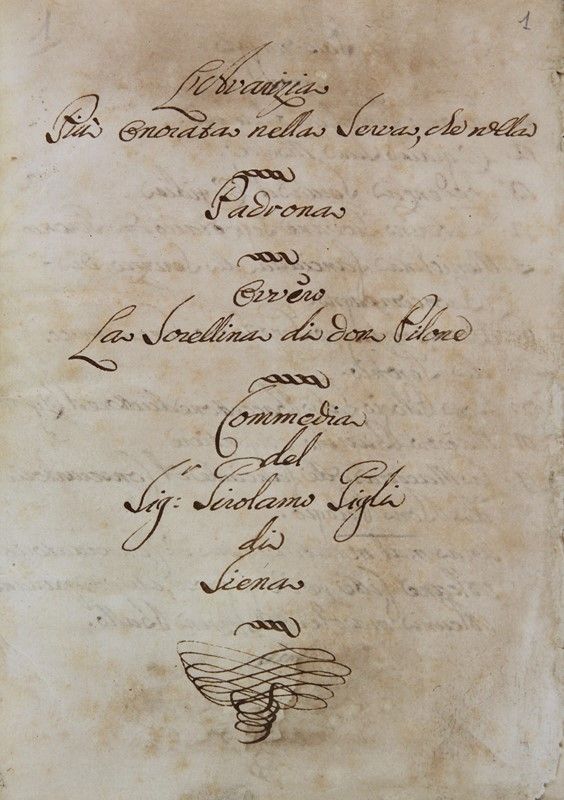 1
L'Avarizia
Più Onorata nella Serva, che nella
Padrona
Ovvero
La Sorellina di don Pilone
Commedia
del
Sig:r Girolamo Gigli
di
Siena